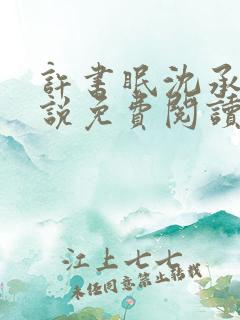 許書眠沈承
說免費閱讀
江上七七
未經同意禁止轉載